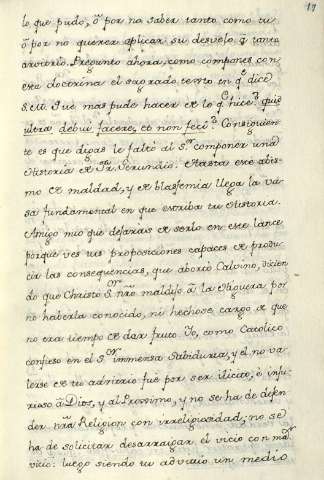 17
lo que pudo, ó por no saber tanto como tu
ó por no querer aplicar su desvelo á tanto
arvitrio. Pregunto ahora, como compones con
esta doctrina el sagrado texto en q.e dice
S.M. Que mas pude hacer q.e lo q.e hice? quid
ultra debui facere, et non feci? Consiguien-
te es que digas le faltó al S.or componer una
Historia de Fr. Gerundio. Hasta este abis-
mo de maldad, y de blasfemia llega la va-
sa fundamental en que estriba tu Historia.
Amigo mio que dejarais de serlo en este lance
porque ves tus proposiciones capaces de produ-
cir las consequencias, que abortó Calvino, dicien-
do que Christo S.or nro maldijo á la Higuera por
no haberla conocido, ni hechose cargo de que
no era tiempo de dar fruto. Yo, como Catolico
confieso en el S.or immensa Sabiduria, y el no va-
lerse de tu adritrio fue por ser ilicito, é inju-
rioso á Dios, y al Proximo, y no se ha de defen
der nra Religion con irreligiosidad; no se
ha de solicitar desarraigar el vicio con mas
vicio: luego siendo tu abvitrio un medio